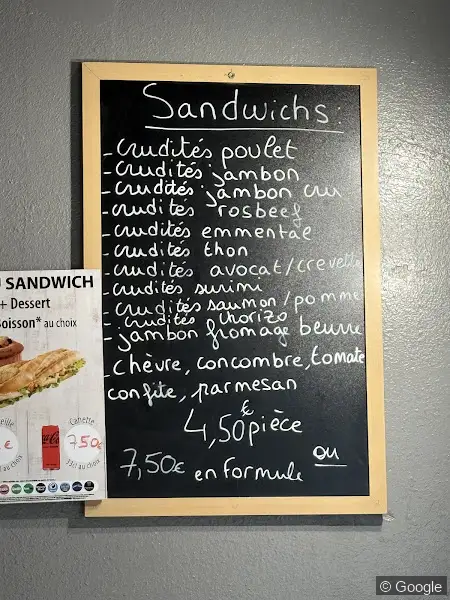 Sandwichs:
- crudités poulet
- crudités jambon
- crudités jambon cru
- crudités rosbeef
- crudités emmentae
- crudités thon
- crudités avocat/crevette
- crudités surimi
- crudités saumon/pomme
- crudités chorizo
- jambon fromage beurre
- chèvre, concombre, tomate
confite, parmesan
4,50€ pièce
ou
7,50€ en formule
SANDWICH
+ Dessert
Boisson* au choix
Canette
7,50
33cl au choix
€
au choix
© Google